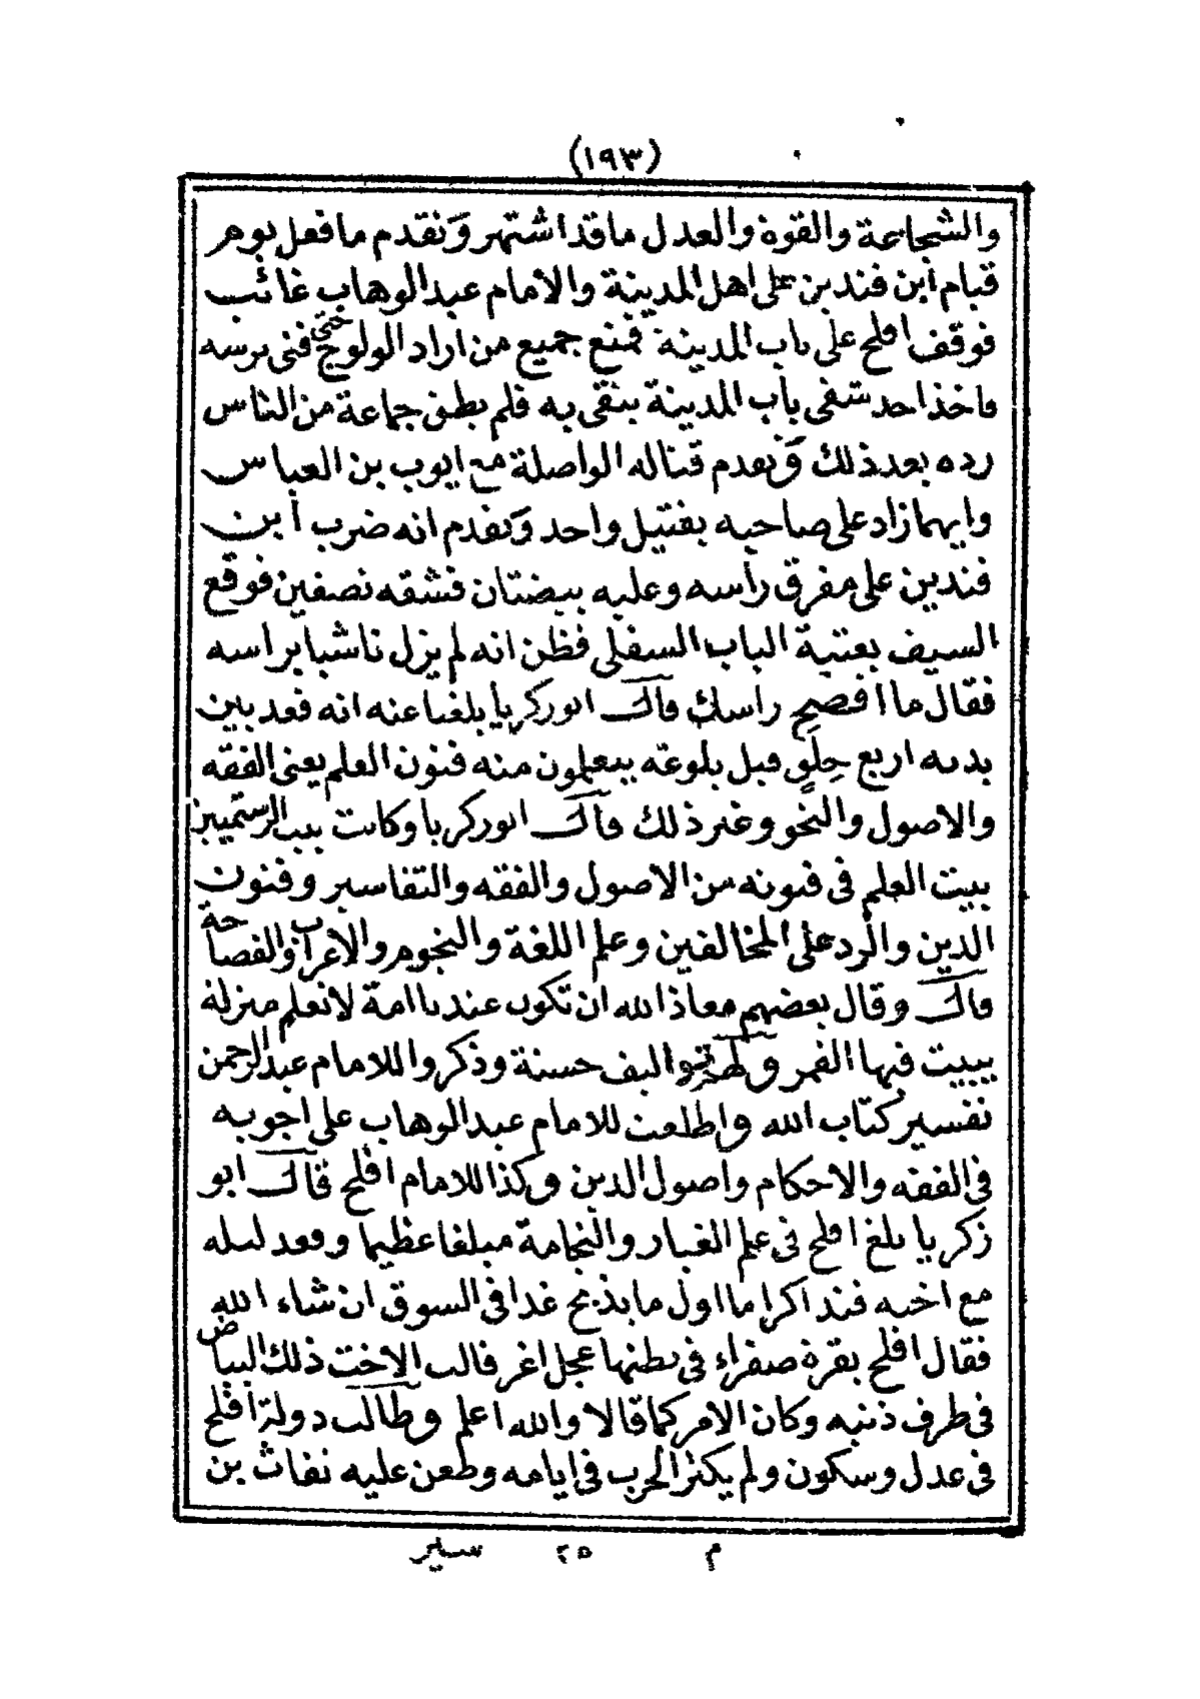 (١٩٣)
والشجاعة والقوة والعدل ما قد اشتهر وتقدم ما فعل يوم
قيام ابن فندين على اهل المدينة والامام عبد الوهاب غائب
فوقف افلح على باب المدينة فمنع جميع من اراد الولوج حتى فنى ترسه
فاخذ احد شقى باب المدينة يتقى به فلم يطق جماعة من الناس
رده بعد ذلك وتقدم قتاله الواصلة مع ايوب بن العباس
وايهما زاد على صاحبه بقتيل واحد وتقدم انه ضرب ابن
فندين على مفرق رأسه وعليه بيضتان فشقه نصفين فوقع
السيف بعتبة الباب السفلى فظن انه لم يزل ناشبا براسه
فقال ما افصح راسك قال ابو زكريا بلغنا عنه انه قعد بين
يديه اربع حلق قبل بلوغه يتعلمون منه فنون العلم يعنى الفقه
والاصول والنحو وغير ذلك قال ابو زكريا وكانت بيت الرستميين
بيت العلم فى فنونه من الاصول والفقه والتفاسير وفنون
الدين والرد على المخالفين وعلم اللغة والنجوم والاعراب والفصاحة
قال وقال بعضهم معاذ الله ان تكون عندنا امة لا تعلم منزلة
يبيت فيها القمر ولهم تواليف حسنة وذكروا للامام عبد الرحمن
تفسير كتاب الله واطلعت للامام عبد الوهاب على اجوبه
فى الفقه والاحكام واصول الدين وكذا للامام افلح قال ابو
زكريا بلغ افلح فى علم الغبار والنجامة مبلغا عظيما وقعد ليله
مع اخيه فتذاكرا ما اول ما يذبح غدا فى السوق ان شاء الله
فقال افلح بقرة صفراء فى بطنها عجل اغر قالت الاخت ذلك البياض
فى طرف ذنبه وكان الامر كما قالا والله اعلم وطالت دولة افلح
فى عدل وسكون ولم يكثر الحرب فى ايامه وطعن عليه نفاث بن
م ٢٥ سير